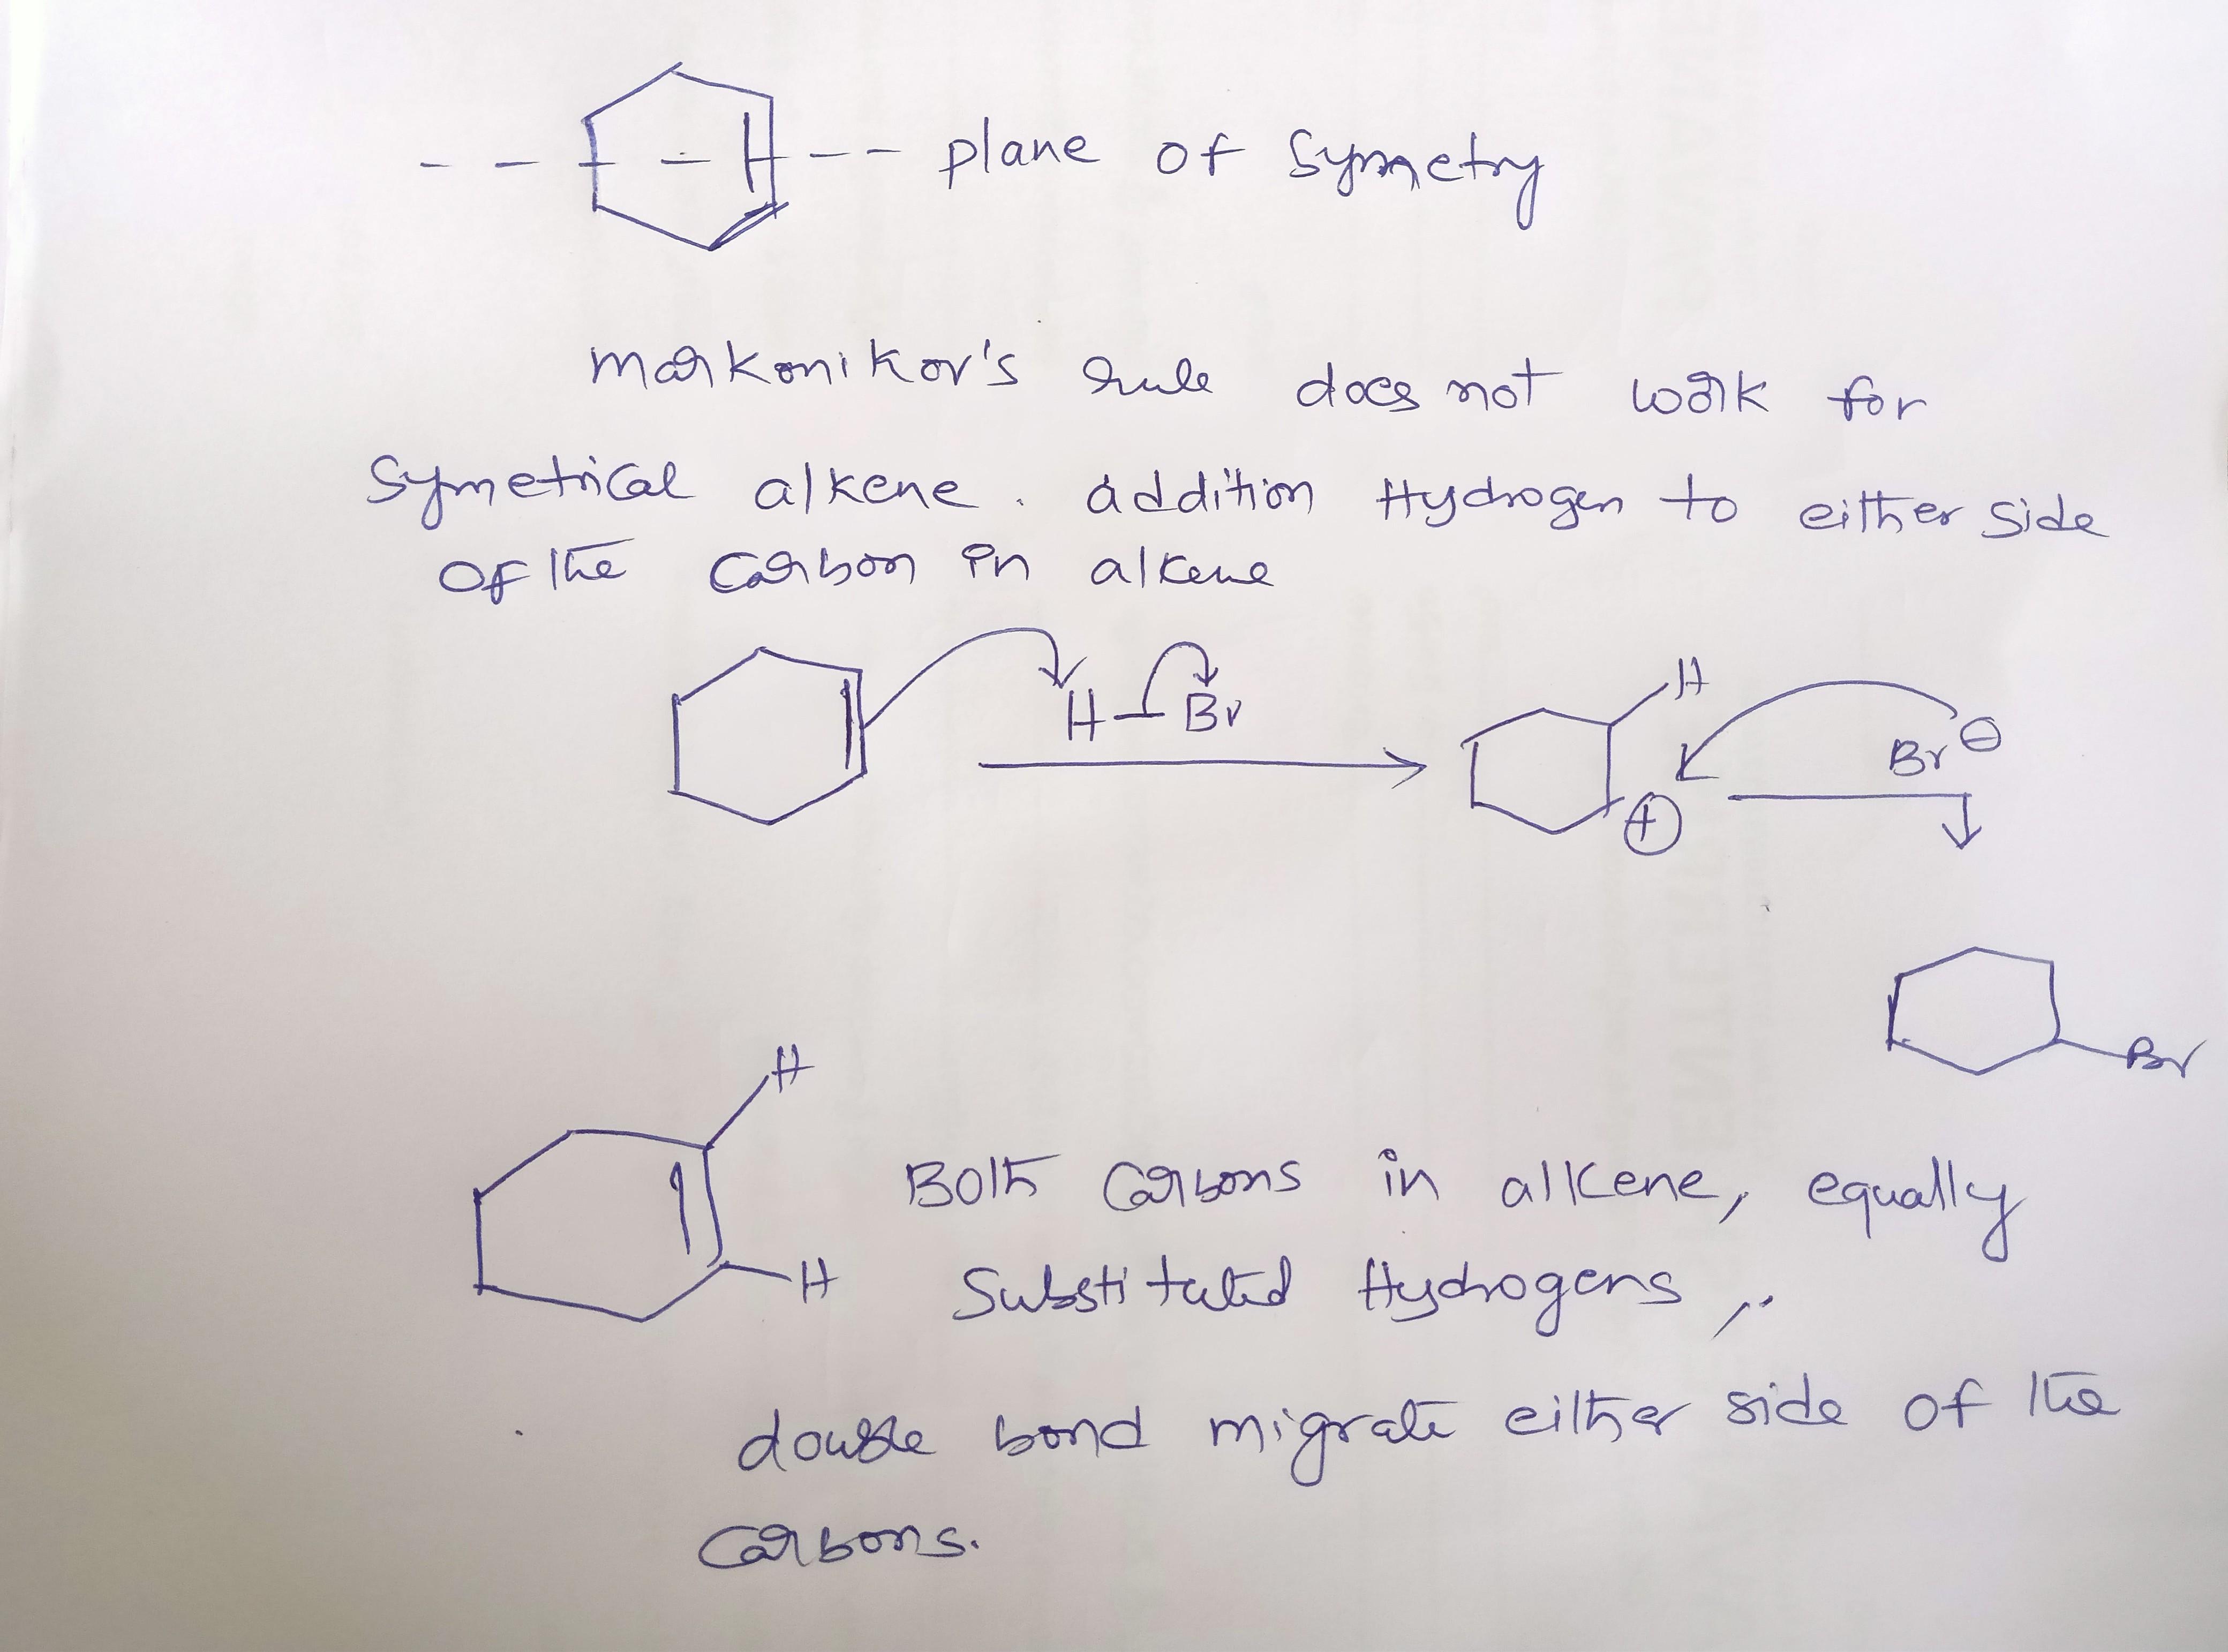 plane of Symmetry
Markonikov's rule does not work for
Symetrical alkene. addition Hydrogen to either side
of the carbon in alkene
H-Br
H
Br ⊖
⊕
Br
H
Both Carbons in alkene, equally
H
Substituted Hydrogens,
double bond migrate either side of the
Carbons.